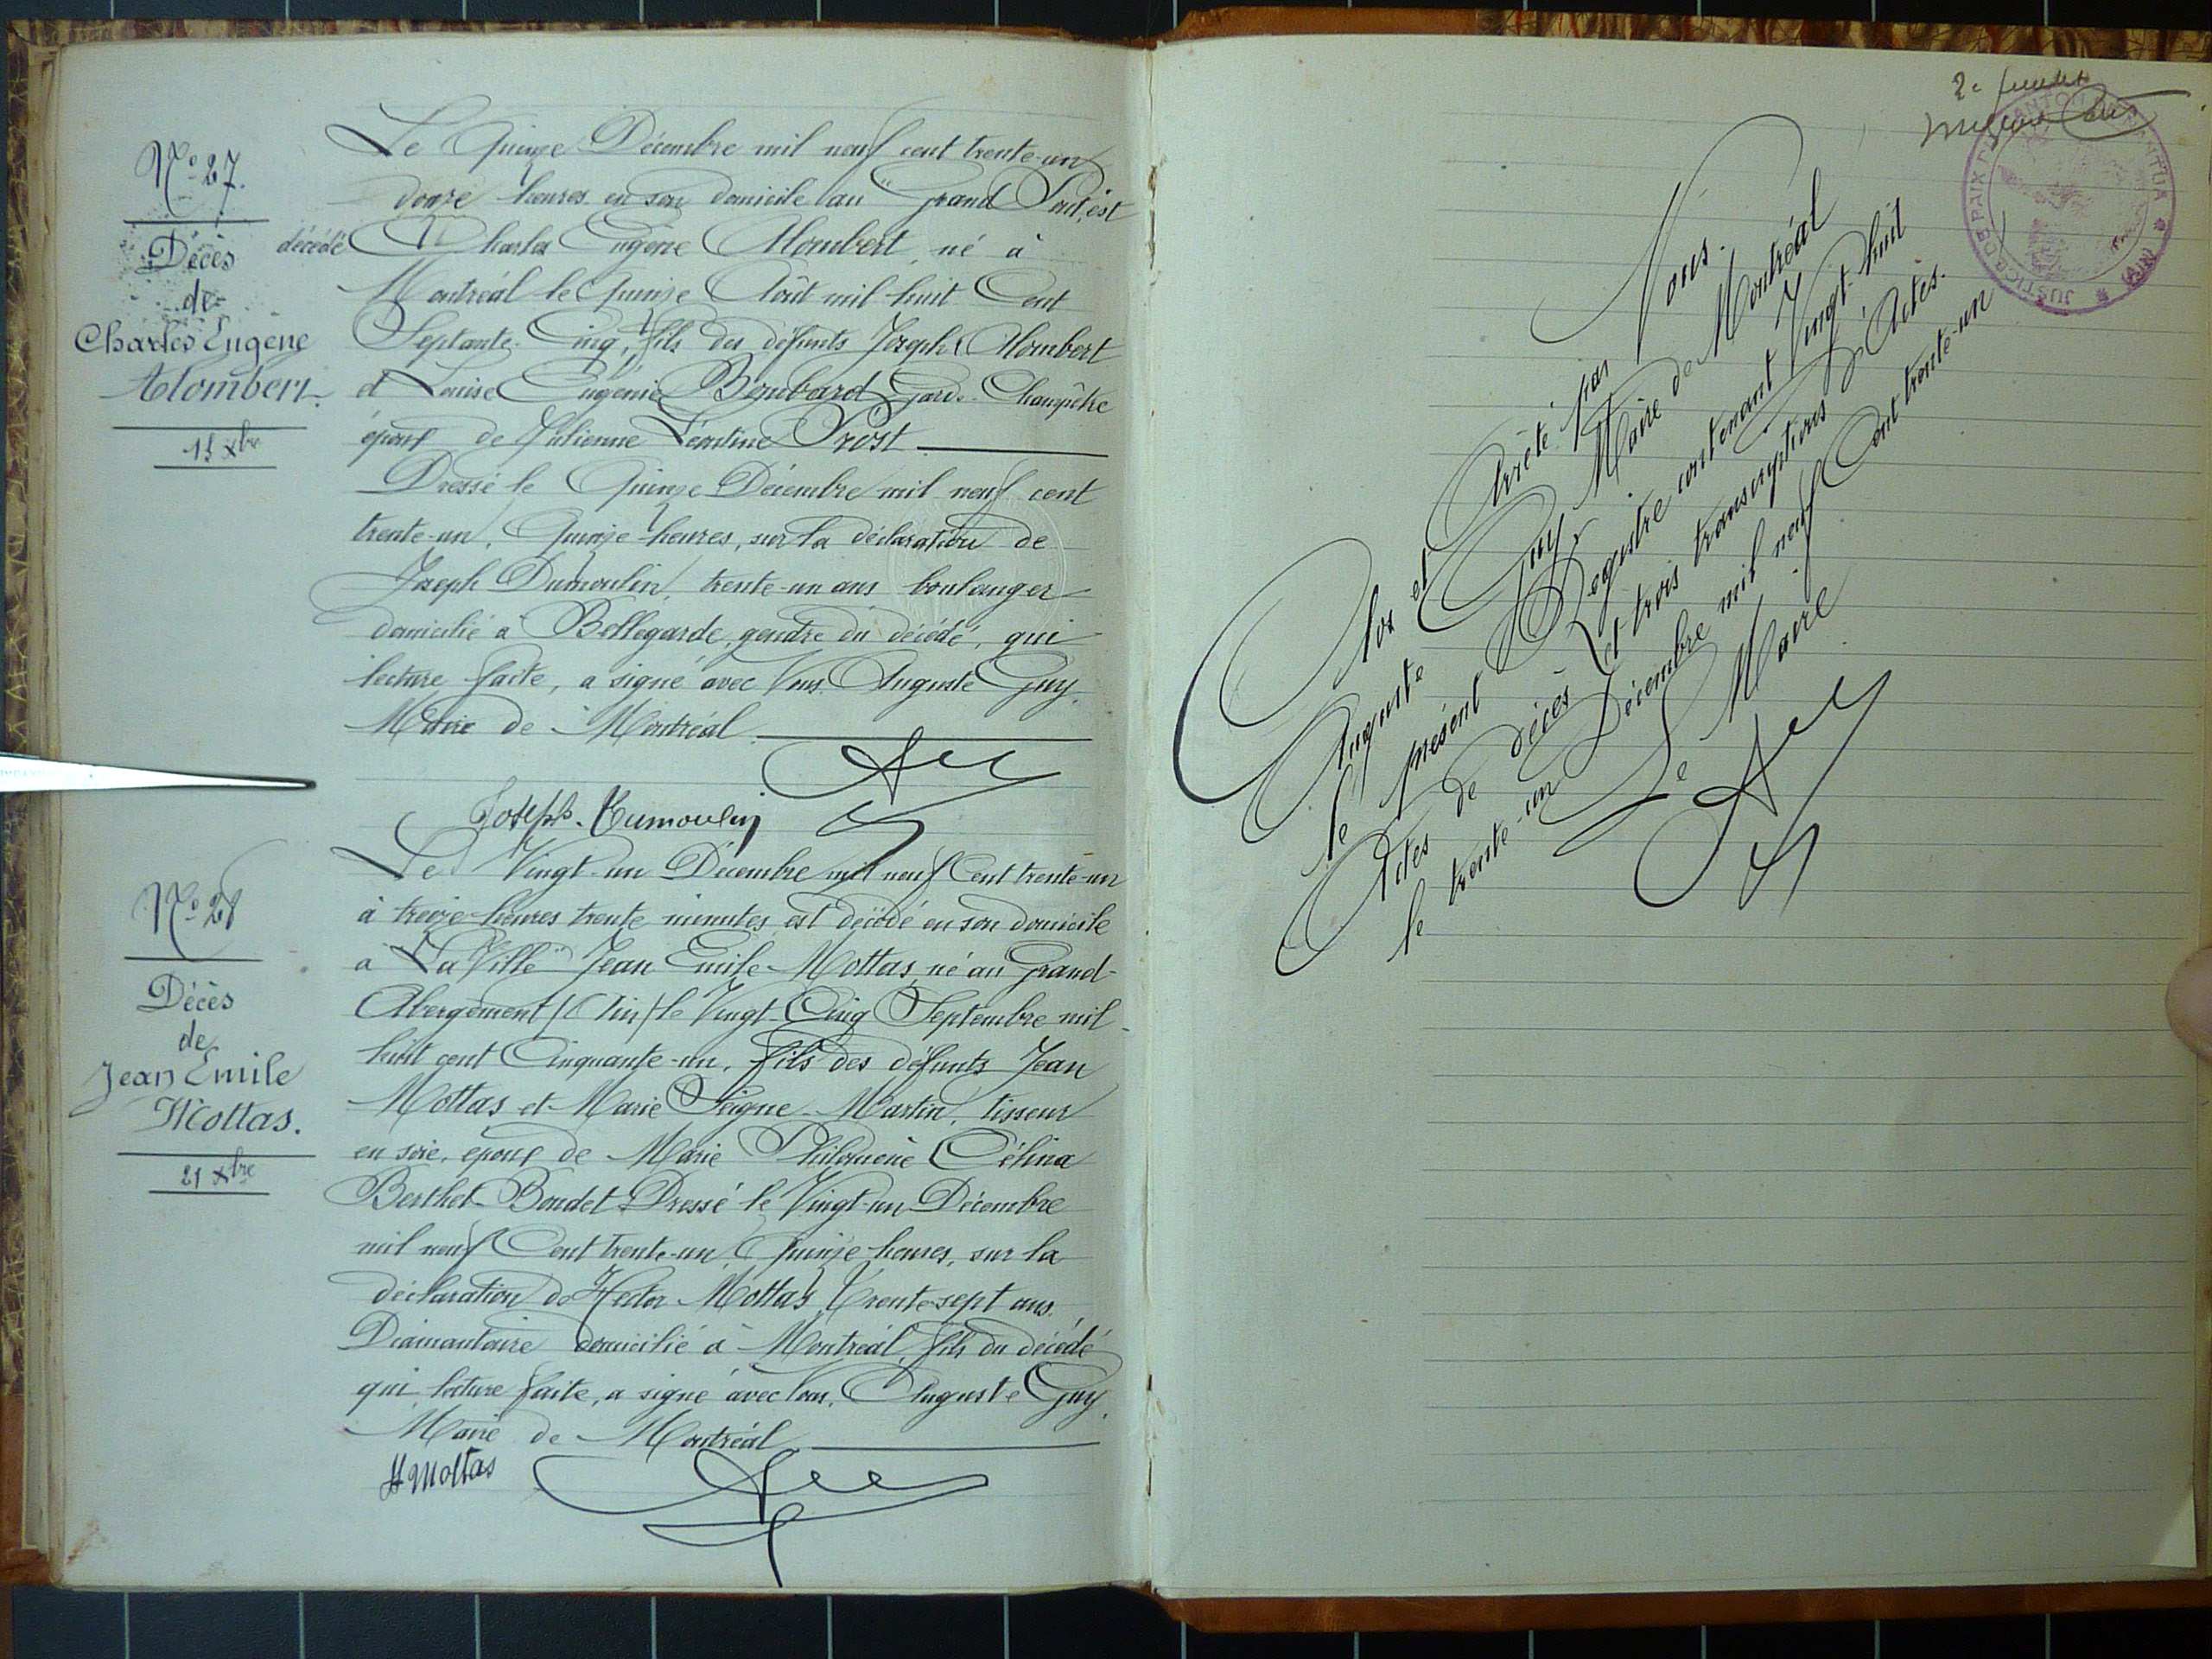 N° 27.
Décès
de
Charles Eugène
Alombert
15 Xbre
Le Quinze Décembre mil neuf cent trente-un
douze heures en son domicile au "Grand Pont", est
décédé Charles Eugène Alombert, né à
Montréal le Quinze Août mil huit Cent
Septante-Cinq, fils des défunts Joseph Alombert
et Louise Eugénie Bombard Garde-Champêtre
époux de Julienne Léontine Prost
Dressé le Quinze Décembre mil neuf cent
trente-un, Quinze heures, sur la déclaration de
Joseph Dumoulin, trente-un ans boulanger
domicilié à Bellegarde, gendre du décédé, qui
lecture faite, a signé avec Nous Auguste Guy,
Maire de Montréal
Joseph Dumoulin
N° 28
Décès
de
Jean Emile
Mottas.
21 Xbre
Le Vingt-un Décembre mil neuf Cent trente-un
à treize heures trente minutes est décédé en son domicile
à "La Ville" Jean Emile Mottas, né au Grand-
Abergement (Ain) le Vingt-Cinq Septembre mil
huit cent Cinquante-un, fils des défunts Jean
Mottas et Marie Peigne-Martin, tisseur
en soie, époux de Marie Philomène Célina
Berthet-Bondet Dressé le Vingt-un Décembre
mil neuf Cent trente-un, Quinze heures, sur la
déclaration de Hector Mottas, Trente-sept ans,
Diamantaire domicilié à Montréal, fils du décédé
qui lecture faite, a signé avec Nous, Auguste Guy,
Maire de Montréal
H Mottas
JUSTICE DE PAIX DU CANTON DE NANTUA (AIN)
Clos et Arrêté par Nous.
Auguste Guy, Maire de Montréal
le présent Registre contenant Vingt-huit
Actes de décès et trois transcriptions d'Actes.
le trente-un Décembre mil neuf Cent trente-un
Le Maire